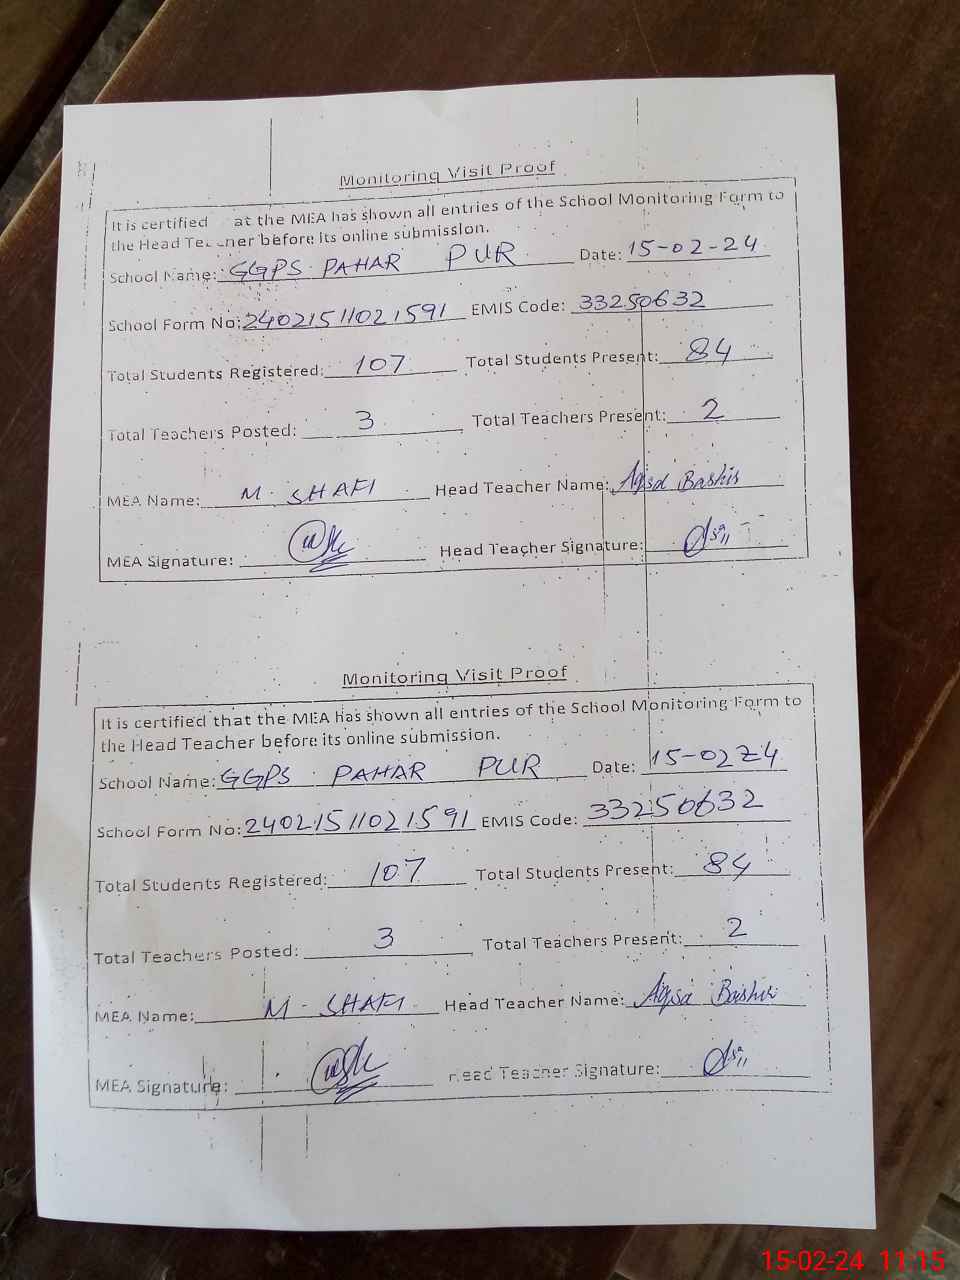 Monitoring Visit Proof
It is certified at the MEA has shown all entries of the School Monitoring Form to
the Head Teacher before its online submission.
School Name: GGPS PAHAR PUR Date: 15-02-24
School Form No: 24021511021591 EMIS Code: 33250632
Total Students Registered: 107 Total Students Present: 84
Total Teachers Posted: 3 Total Teachers Present: 2
MEA Name: M. SHAFI Head Teacher Name: Aqsa Bashir
MEA Signature: Head Teacher Signature:
Monitoring Visit Proof
It is certified that the MEA has shown all entries of the School Monitoring Form to
the Head Teacher before its online submission.
School Name: GGPS PAHAR PUR Date: 15-02 24
School Form No: 24021511021591 EMIS Code: 33250632
Total Students Registered: 107 Total Students Present: 84
Total Teachers Posted: 3 Total Teachers Present: 2
MEA Name: M - SHAFI Head Teacher Name: Aqsa Bashir
MEA Signature: Head Teacher Signature:
15-02-24 11:15